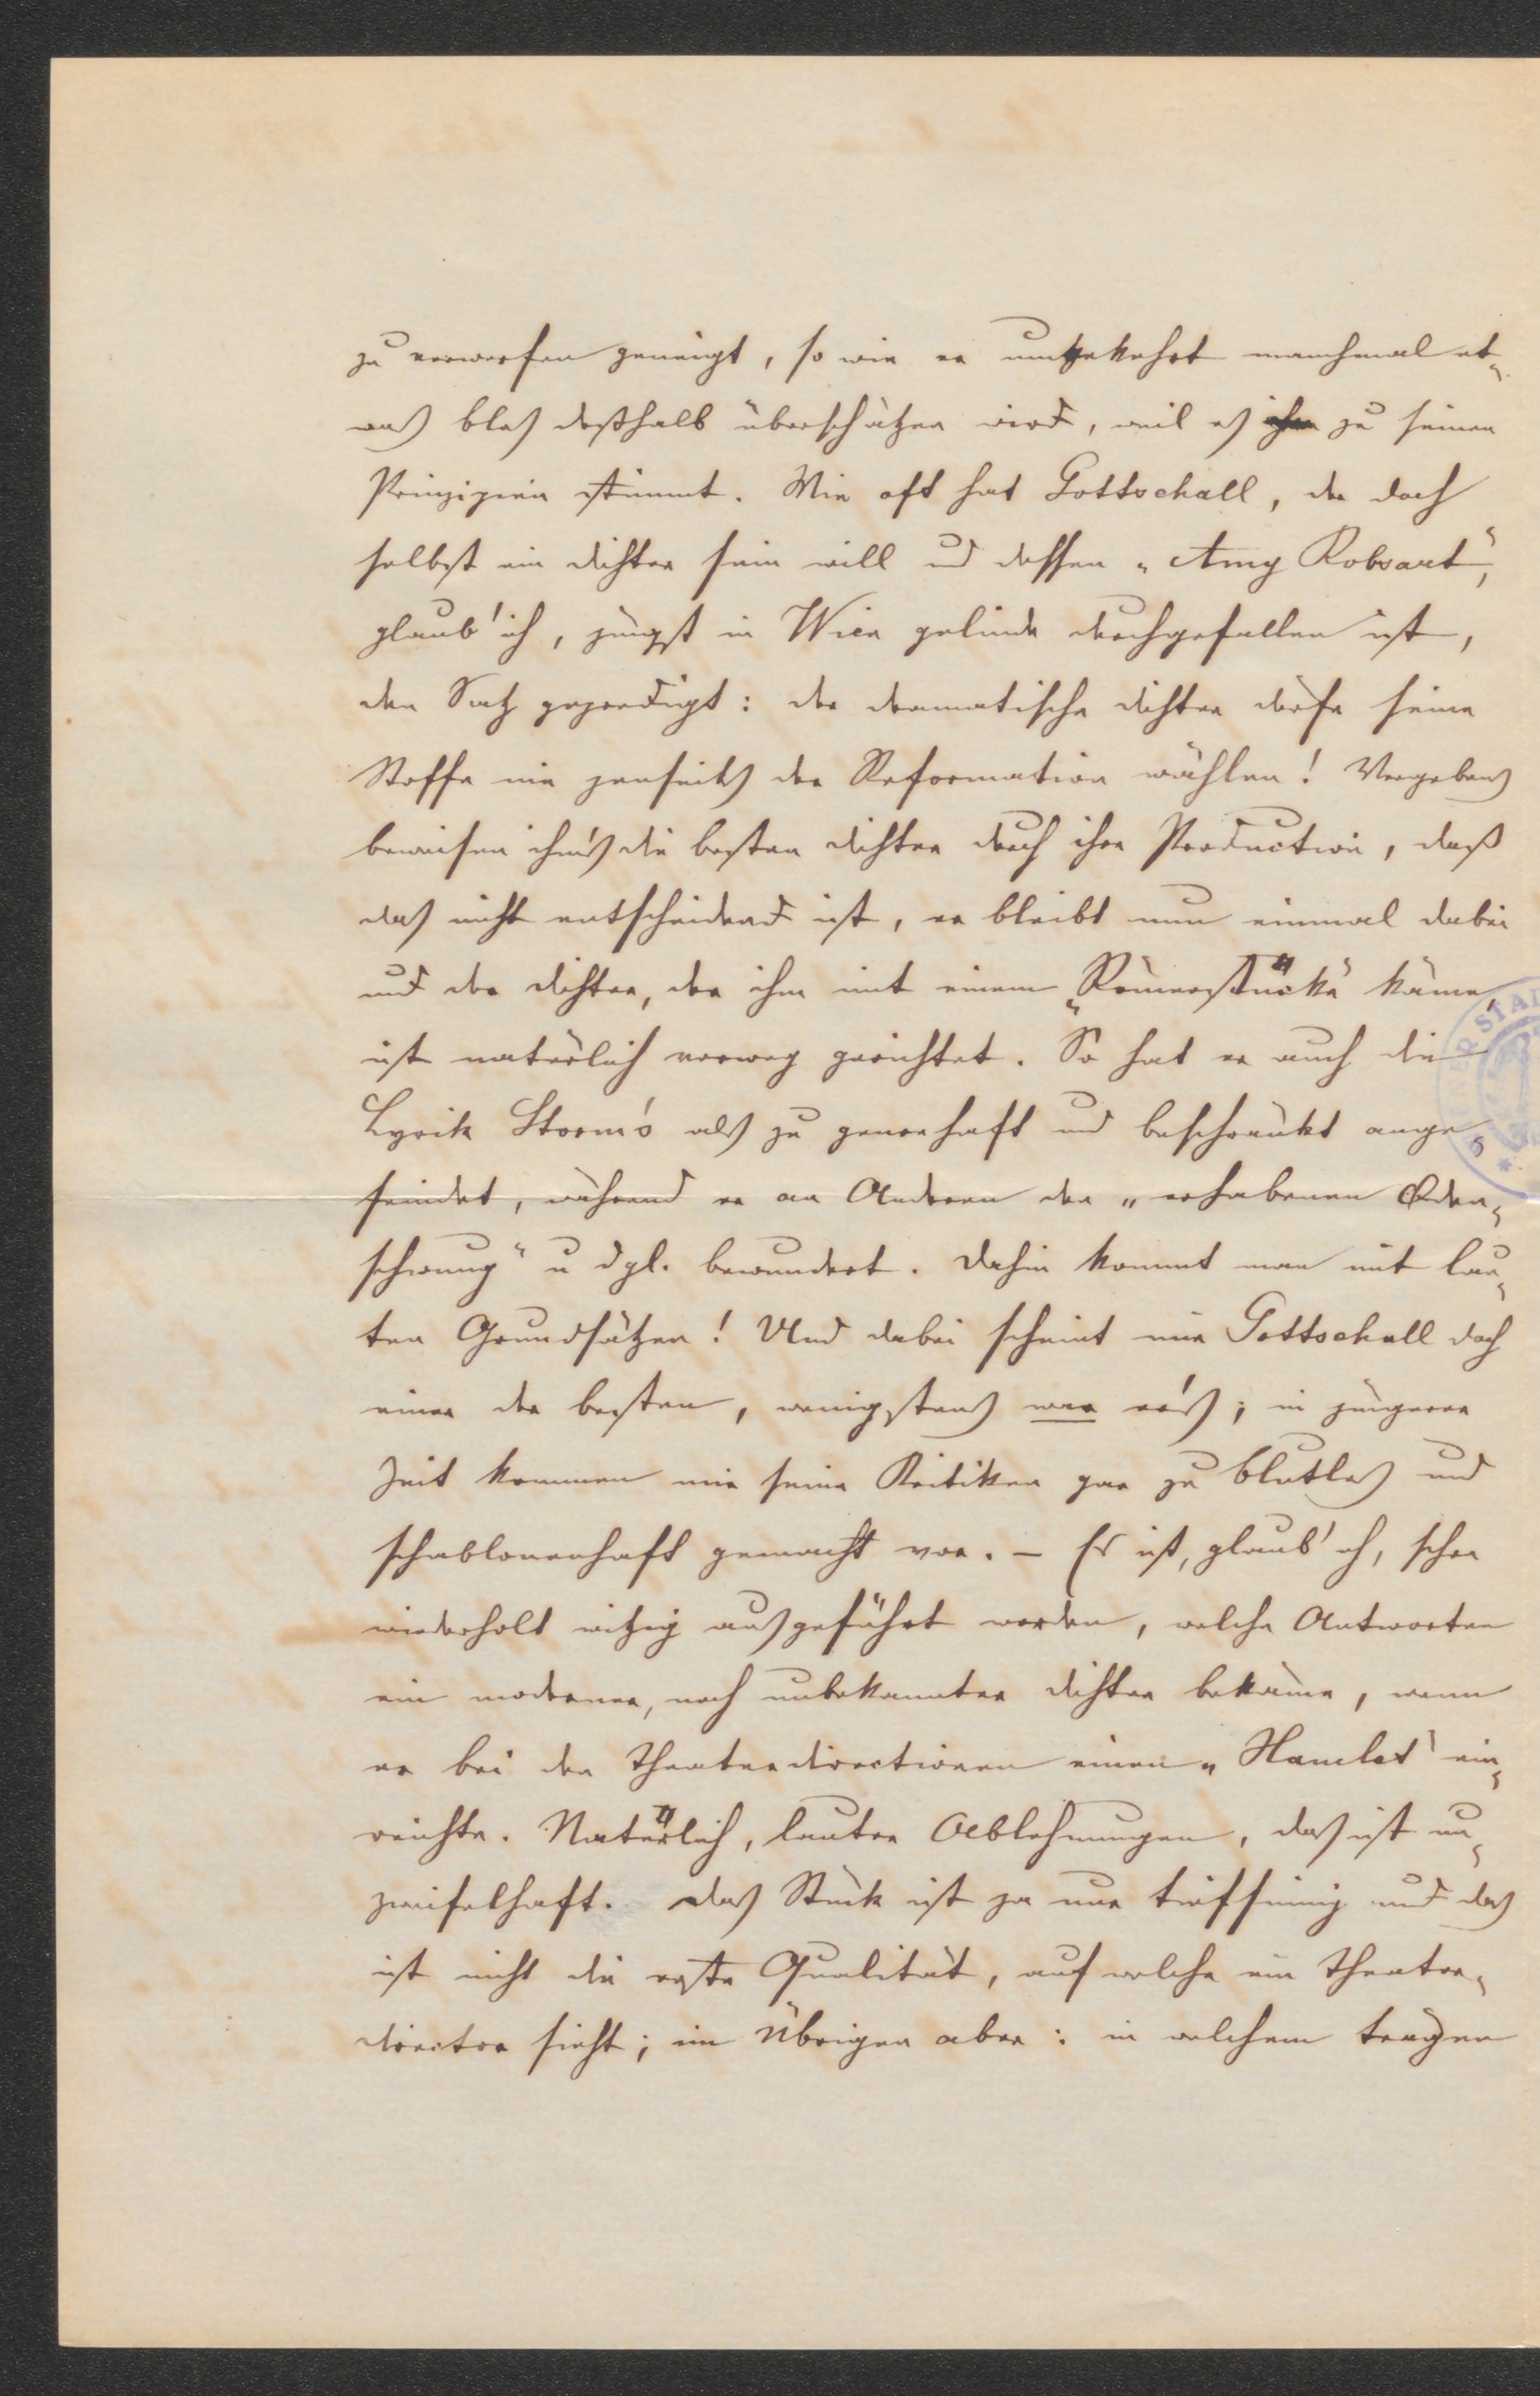 zu verwerfen geneigt, so wie er umgekehrt manchmal et-
was blos deßhalb überschätzen wird, weil es zu seinen
Prinzipien stimmt. Wie oft hat Gottschall, der doch
selbst ein Dichter sein will und dessen „Amy Robsart",
glaub' ich, jüngst in Wien gelinde durchgefallen ist,
den Satz gepredigt: der dramatische Dichter dürfe seine
Stoffe nie jenseits der Reformation wählen! Vergebens
beweisen ihm's die besten Dichter durch ihre Production, daß
das nicht entscheidend ist, er bleibt nun einmal dabei
und der Dichter, der ihm mit einem „Römerstücke" käme,
ist natürlich vorweg gerichtet. So hat er auch die
Lyrik Storm's als zu genrehaft und beschränkt ange-
feindet, während er an Anderen den „erhabenen Oden-
schwung" u dgl. bewundert. Dahin kommt man mit lau-
ter Grundsätzen! Und dabei scheint mir Gottschall doch
einer der besten, wenigstens war er's; in jüngerer
Zeit kommen mir seine Kritiken gar zu blutlos und
schablonenhaft gemacht vor. – Es ist, glaub' ich, schon
wiederholt witzig ausgeführt worden, welche Antworten
ein moderner, noch unbekannter Dichter bekäme, wenn
er bei den Theaterdirectionen einen „Hamlet" ein-
reichte. Natürlich, lauter Ablehnungen, das ist un-
zweifelhaft. Das Stück ist ja nur tiefsinnig und das
ist nicht die erste Qualität, auf welche ein Theater-
director sieht; im Übrigen aber: in welchem trägen